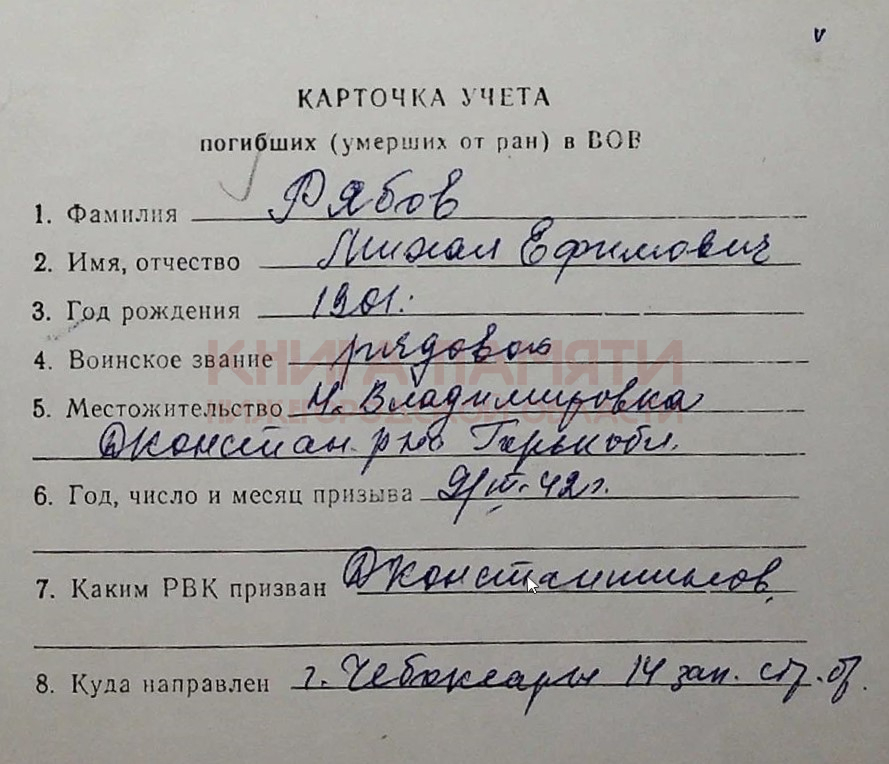 v
КАРТОЧКА УЧЕТА
погибших (умерших от ран) в ВОВ
1. Фамилия Рябов
2. Имя, отчество Михаил Ефимович
3. Год рождения 1901.
4. Воинское звание рядовой
КНИГА ПАМЯТИ
5. Местожительство Н. Владимировка
НИЖЕГОРОДСКОЙ ОБЛАСТИ
Дконстан. р-на Горьк обл.
6. Год, число и месяц призыва 9/III-42 г.
7. Каким РВК призван Дконстантинов.
8. Куда направлен г. Чебоксары 14 зап. стр. бр.